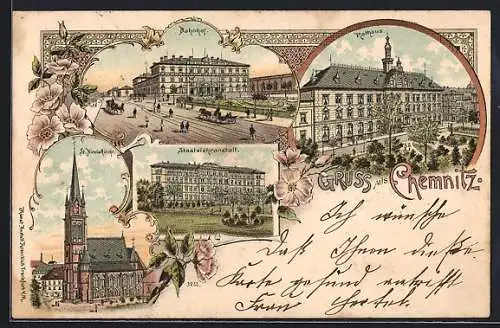 Bahnhof.
Rathaus
St. Nicolaikirche
Staatslehranstalt.
GRUSS aus Chemnitz.
Ich wünsche
Daß Ihnen diese
Karte gesund antrifft
Frau Hertel.
3251.